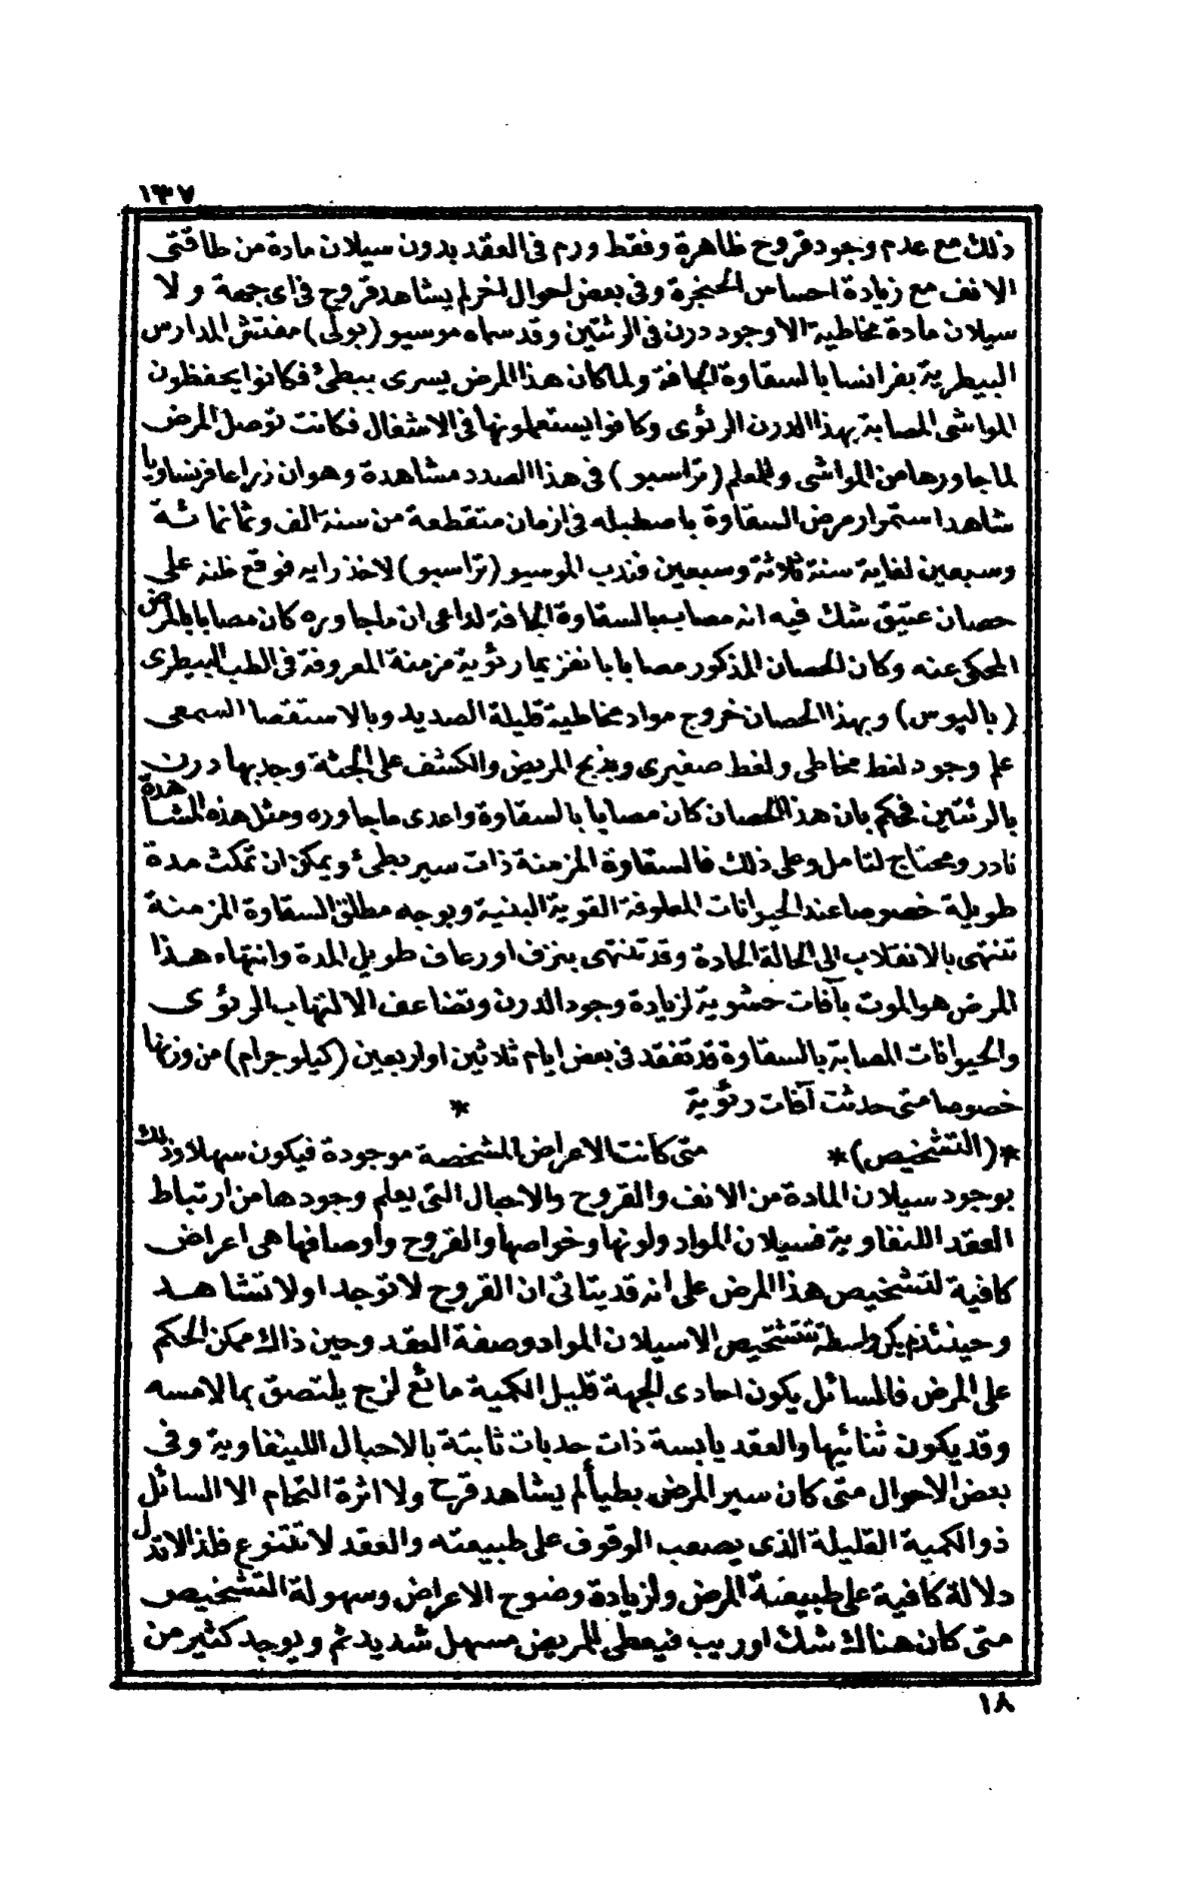 ١٣٧
ذلك مع عدم وجود قروح ظاهرة وفقط ورم فى العقد بدون سيلان مادة من طاقتى
الانف مع زيادة احساس الحنجرة وفى بعض احوال اخر لم يشاهد قروح فى اى جهة ولا
سيلان مادة مخاطية الا وجود درن فى الرئتين وقد سماه موسيو (بولى) مفتش المدارس
البيطرية بفرانسا بالسقاوة الجافة ولما كان هذا المرض يسرى ببطئ فكانوا يحفظون
المواشى المصابة بهذا الدرن الرئوى وكانوا يستعملونها فى الاشغال فكانت توصل المرض
لما جاورها من المواشى وللمعلم (تراسبو) فى هذا الصدد مشاهدة وهو ان زراعا فرنساويا
شاهد استمرار مرض السقاوة باصطبله فى ازمان متقطعة من سنة الف وثمانمائة
وسبعين لغاية سنة ثلاثة وسبعين فندب الموسيو (تراسبو) لاخذ رايه فوقع ظنه على
حصان عتيق شك فيه انه مصاب بالسقاوة الجافة لداعى ان ماجاوره كان مصابا بالمرض
المحكى عنه وكان الحصان المذكور مصابا بانفزيما رئوية مزمنة المعروفة فى الطب البيطرى
(بالپوس) وبهذا الحصان خروج مواد مخاطية قليلة الصديد وبالاستقصا السمعى
علم وجود لغط مخاطى ولغط صفيرى وبذبح المريض والكشف على الجثة وجد بها درن
بالرئتين فحكم بان هذا الحصان كان مصابا بالسقاوة واعدى ماجاوره ومثل هذه المشاهدة
نادر ومحتاج لتامل وعلى ذلك فالسقاوة المزمنة ذات سير بطئ ويمكن ان تمكث مدة
طويلة خصوصا عند الحيوانات المعلوفة القوية البنية وبوجه مطلق السقاوة المزمنة
تنتهى بالانقلاب الى الحالة الحادة وقد تنتهى بنزف او رعاف طويل المدة وانتهاء هذا
المرض هو الموت بآفات حشوية لزيادة وجود الدرن وتضاعف الالتهاب الرئوى
والحيوانات المصابة بالسقاوة قد تفقد فى بعض ايام ثلاثين او اربعين (كيلوجرام) من وزنها
خصوصا متى حدثت آفات رئوية *
*(التشخيص)* متى كانت الاعراض المشخصة موجودة فيكون سهلا وذلك
بوجود سيلان المادة من الانف والقروح والاحبال التى يعلم وجودها من ارتباط
العقد اللنفاوية فسيلان المواد ولونها وخواصها والقروح وأوصافها هى اعراض
كافية لتشخيص هذا المرض على انه قد يتاتى ان القروح لا توجد او لا تشاهد
وحينئذ لم يكن واسطة لتشخيص الا سيلان المواد وصفة العقد وحين ذاك ممكن الحكم
على المرض فالسائل يكون احادى الجهة قليل الكمية مائع لزج يلتصق بمالامسه
وقد يكون ثنائيها والعقد يابسة ذات حدبات ثابتة بالاحبال اللينفاوية وفى
بعض الاحوال متى كان سير المرض بطيأ لم يشاهد قرح ولا اثرة التحام الا السائل
ذو الكمية القليلة الذى يصعب الوقوف على طبيعته والعقد لا تتنوع فلذا لا تدل
دلالة كافية على طبيعة المرض ولزيادة وضوح الاعراض وسهولة التشخيص
متى كان هناك شك او ريب فيعطى للمريض مسهل شديد ثم ويوجد كثير من
١٨